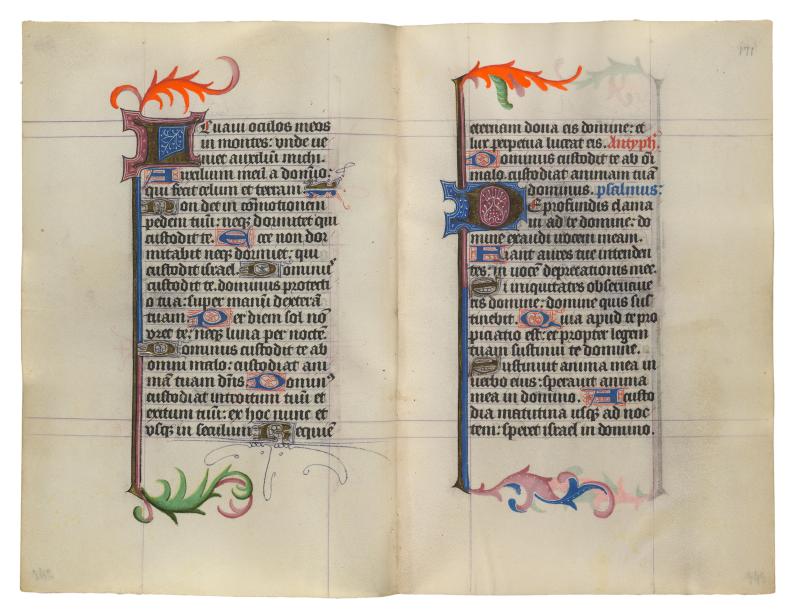 Leuaui oculos meos
in montes: vnde ve
niet auxiliū michi.
Auxilium meū a domīo:
qui fecit celum et terram.
Non det in cōmotionem
pedem tuū: neqꝫ dormitet qui
custodit te. Ecce non dor
mitabit neqꝫ dormiet: qui
custodit israel. Dominus
custodit te. dominus protecti
o tua: super manū dexterā
tuam. Per diem sol nō
vret te: neqꝫ luna per noctē.
Dominus custodit te ab
omni malo: custodiat ani
mā tuam dn̄s. Dominꝰ
custodiat introitum tuū et
exitum tuū: ex hoc nunc et
vsqꝫ in seculum. Requiē
171
eternam dona eis domine: et
lux perpetua luceat eis. Antyph̄.
Dominus custodit te ab oī
malo. custodiat animam tuā
dominus. psalmus:
De profundis clama
ui ad te domine: do
mine exaudi vocem meam.
Fiant aures tue intenden
tes: in vocē deprecationis mee.
Si iniquitates obseruaue
ris domine: domine quis sus
tinebit. Quia apud te pro
piciatio est: et propter legem
tuam sustinui te domine.
Sustinuit anima mea in
verbo eius: sperauit anima
mea in domino. A custo
dia matutina usqꝫ ad noc
tem: speret israel in domino.